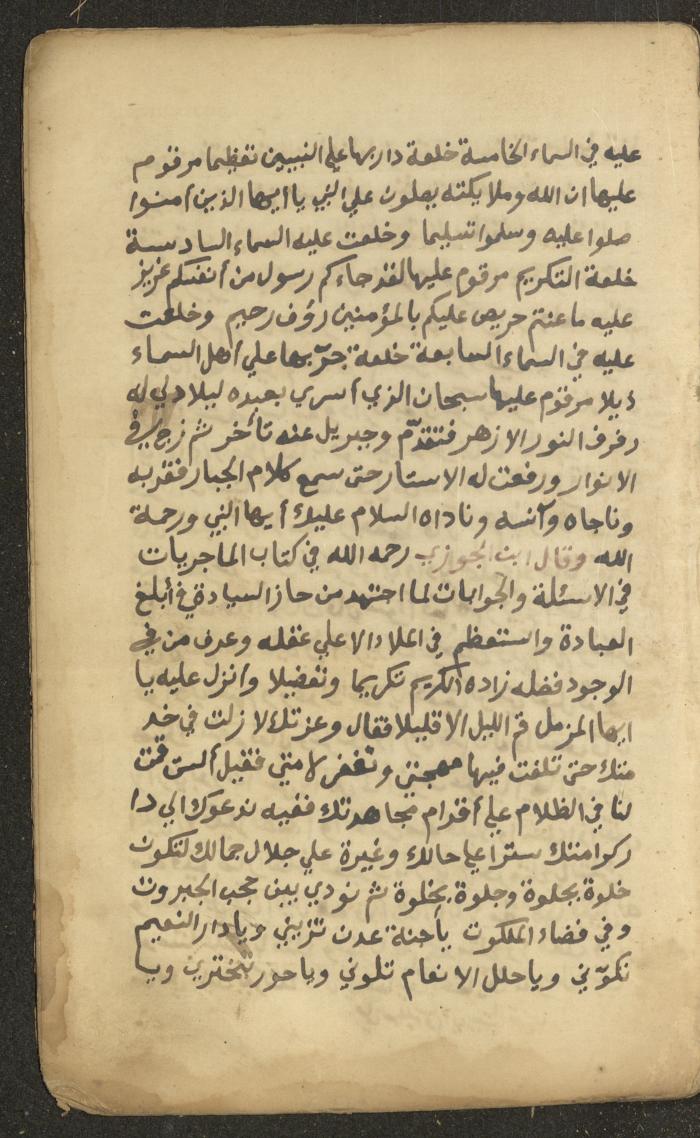 عليه في السماء الخامسة خلعة دار بها علي النبيين تعظيما مرقوم
عليها ان الله وملايكته يصلون علي النبي يا أيها الذين أمنوا
صلوا عليه وسلموا تسليما وخلعت عليه السماء السادسة
خلعة التكريم مرقوم عليها لقد جاءكم رسول من أنفسكم عزيز
عليه ما عنتم حريص عليكم بالمؤمنين رؤف رحيم وخلعت
عليه في السماء السابعة خلعة جرّ بها علي أهل السماء
ذيلا مرقوم عليها سبحان الذي أسري بعبده ليلا دلي له
رفرف النور الازهر فتقدّم وجبريل عنه تأخر ثم زج في
الانوار ورفعت له الاستار حتى سمع كلام الجبار فقربه
وناجاه وآنسه وناداه السلام عليك أيها النبي ورحمة
الله وقال ابن الجوزي رحمه الله في كتاب الماجريات
في الاسئلة والجوابات لما اجتهد من حاز السيادة في أبلغ
العبادة واستعظم في الملاء الاعلي عقله وعرف من في
الوجود فضله زاده الكريم تكريما وتفضيلا وأنزل عليه يا
ايها المزمل قم الليل الا قليلا فقال وعزتك لا زلت في خد
متك حتى تلفت فيها مهجتي وتغفر لامتي فقيل ألست قمت
لنا في الظلام علي أقدام مجاهدتك ففيه ندعوك الي دا
ركرامتك سترا علي حالك وغيرة علي جلال جمالك لتكون
خلوة بجلوة وجلوة بخلوة ثم نودي بين حجب الجبروت
وفي فضاء الملكوت يا جنة عدن تزيني ويا دار النعيم
تكوّني ويا حلل الانعام تلوني ويا حور تبخترين ويا